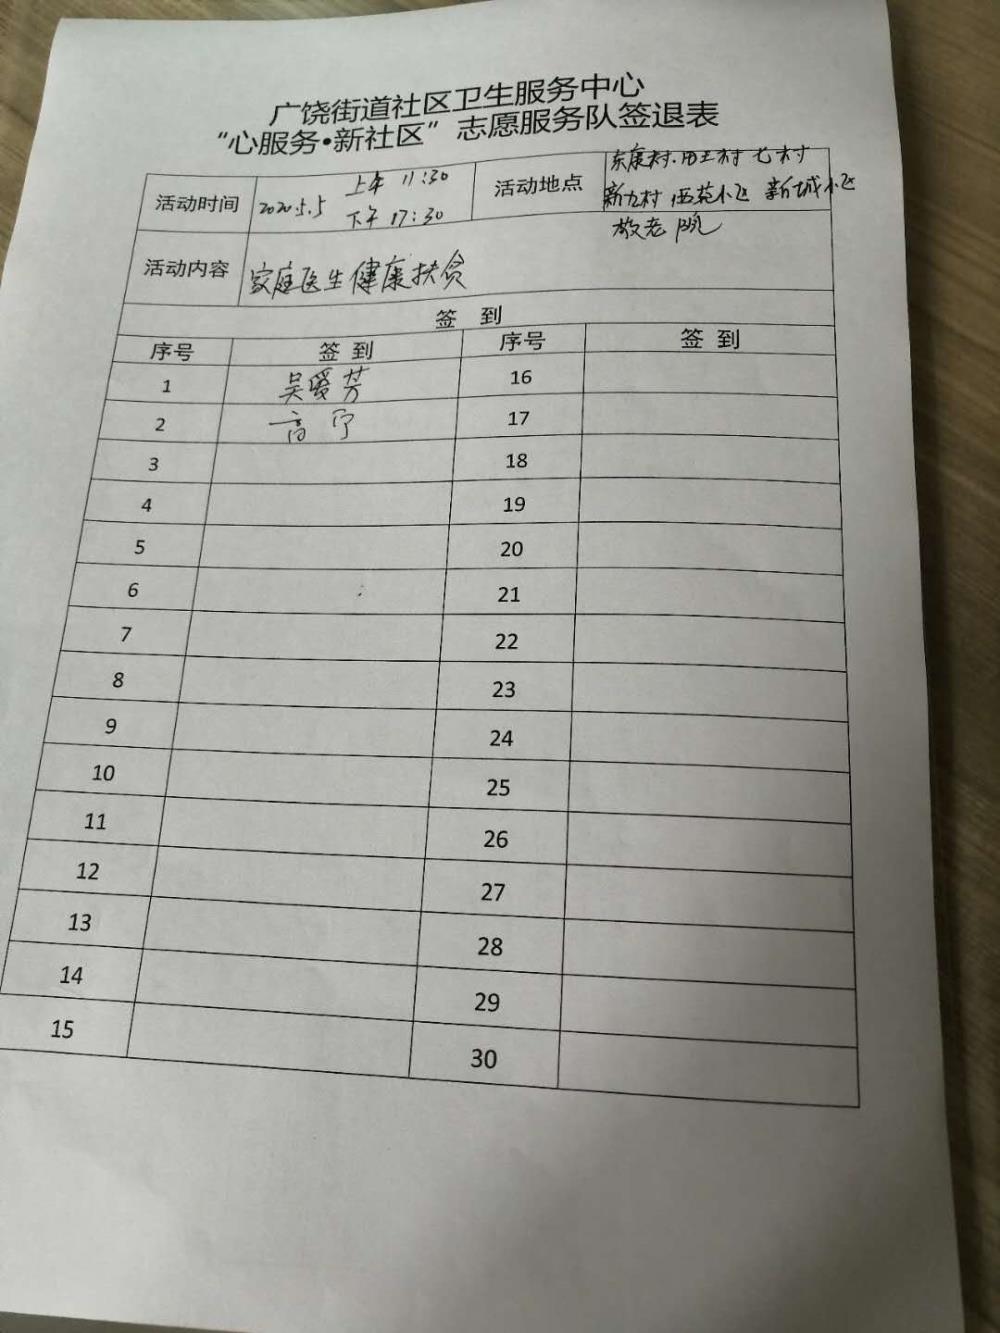 广饶街道社区卫生服务中心
“心服务·新社区”志愿服务队签退表
活动时间 2020.5.5 上午 11:30 下午 17:30 活动地点 东康村.田王村 七村
新九村 西苑小区 新城小区
敬老院
活动内容 家庭医生健康扶贫
签 到
序号 签 到 序号 签 到
1 吴爱芳 16
2 高宁 17
3 18
4 19
5 20
6 21
7 22
8 23
9 24
10 25
11 26
12 27
13 28
14 29
15 30